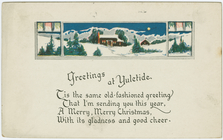 Greetings at Yuletide.
'Tis the same old-fashioned greeting
That I'm sending you this year,
A Merry, Merry Christmas,
With its gladness and good cheer.